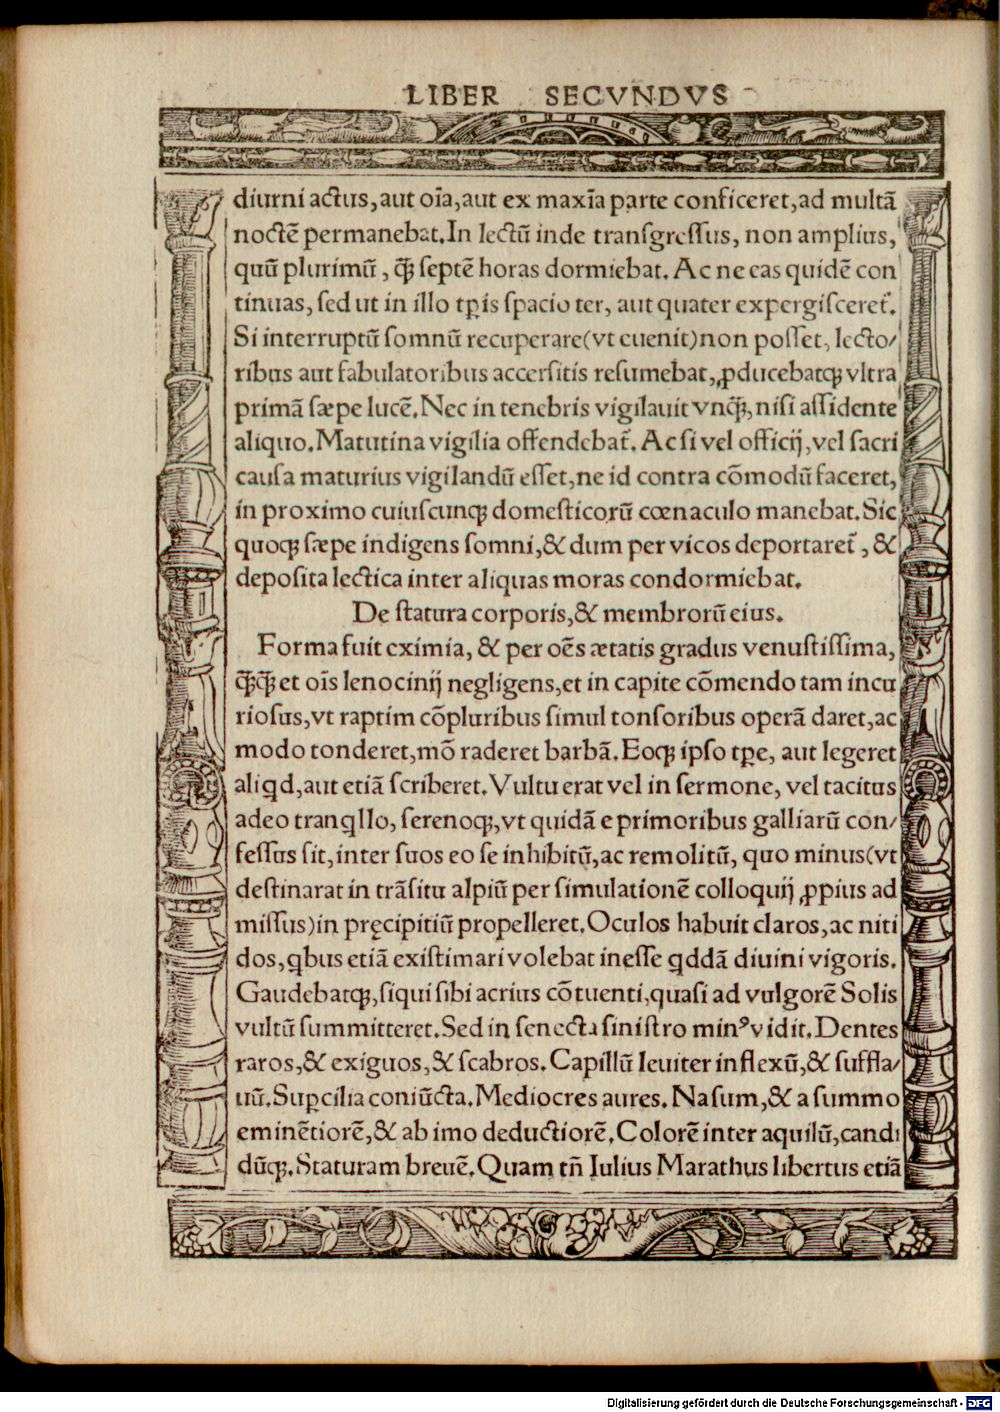 LIBER SECVNDVS
diurni actus, aut oīa, aut ex maxīa parte conficeret, ad multā
noctē permanebat. In lectū inde transgressus, non amplius,
quū plurimū, q̄ꝫ septē horas dormiebat. Ac ne eas quidē con
tinuas, sed ut in illo tꝑis spacio ter, aut quater expergisceret᷑.
Si interruptū somnū recuperare (vt euenit) non posset, lecto/
ribus aut fabulatoribus accersitis resumebat, ꝓducebatqꝫ vltra
primā sæpe lucē. Nec in tenebris vigilauit vnq̄ꝫ, nisi assidente
aliquo. Matutina vigilia offendebat᷑. Ac si vel officij, vel sacri
causa maturius vigilandū esset, ne id contra cōmodū faceret,
in proximo cuiuscunqꝫ domesticorū cœnaculo manebat. Sic
quoqꝫ sæpe indigens somni, & dum per vicos deportaret᷑, &
deposita lectica inter aliquas moras condormiebat.
De statura corporis, & membrorū eius.
Forma fuit eximia, & per oēs ætatis gradus venustissima,
q̄ꝫq̄ꝫ et oīs lenocinij negligens, et in capite cōmendo tam incu
riosus, vt raptim cōpluribus simul tonsoribus operā daret, ac
modo tonderet, mō raderet barbā. Eoqꝫ ipso tꝑe, aut legeret
aliqd, aut etiā scriberet. Vultu erat vel in sermone, vel tacitus
adeo tranqllo, serenoqꝫ, vt quidā e primoribus galliarū con/
fessus sit, inter suos eo se inhibitū, ac remolitū, quo minus (vt
destinarat in trāsitu alpiū per simulationē colloquij ꝓpius ad
missus) in pręcipitiū propelleret. Oculos habuit claros, ac niti
dos, qbus etiā existimari volebat inesse qddā diuini vigoris.
Gaudebatqꝫ, siqui sibi acrius cōtuenti, quasi ad vulgorē Solis
vultū summitteret. Sed in senecta sinistro minꝰ vidit. Dentes
raros, & exiguos, & scabros. Capillū leuiter inflexū, & suffla/
uū. Suꝑcilia coniūcta. Mediocres aures. Nasum, & a summo
eminētiorē, & ab imo deductiorē. Colorē inter aquilū, candi
dūqꝫ. Staturam breuē. Quam tn̄ Iulius Marathus libertus etiā
Digitalisierung gefördert durch die Deutsche Forschungsgemeinschaft - DFG